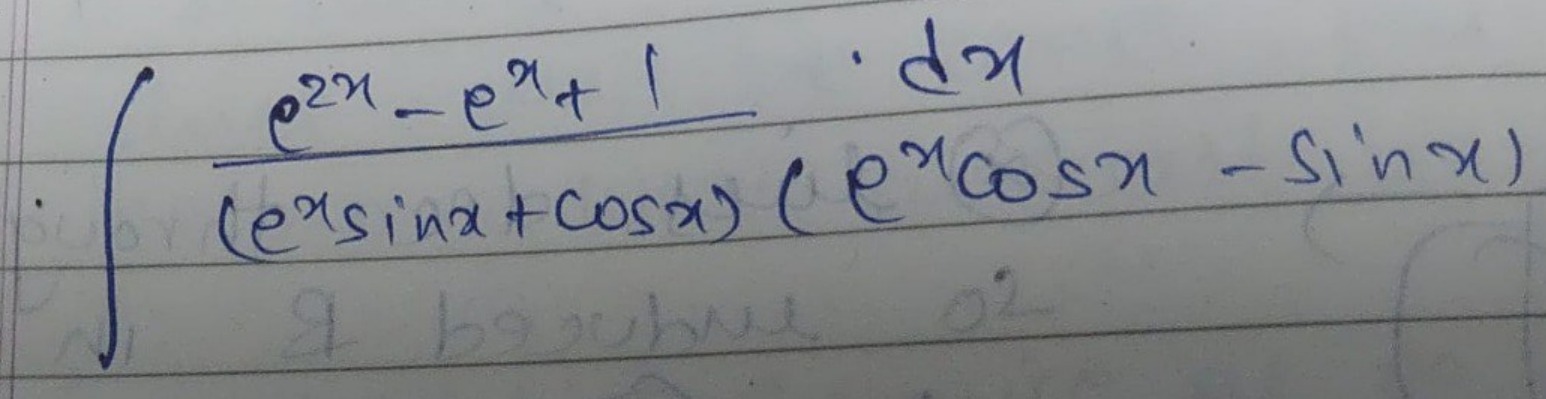 ∫ e^{2x} - e^x + 1 / (e^x sinx + cosx) (e^x cosx - sinx) · dx